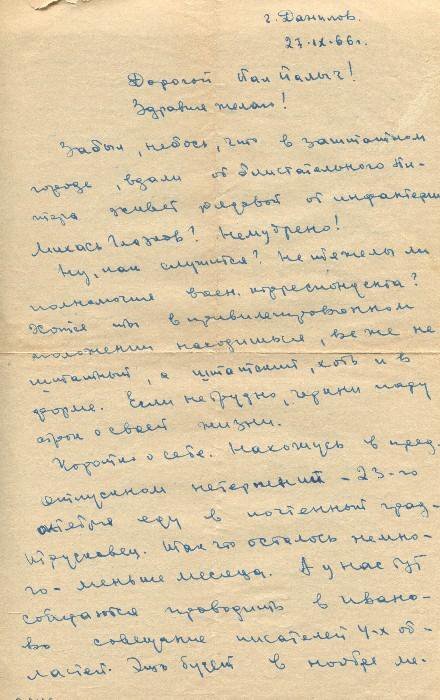 г. Данилов.
27.IX.66г.
Дорогой Пал Палыч!
Здравия желаю!
Забыл, небось, что в заштатном
городе, вдали от блистательного Пи-
тера живет рядовой от инфантерии
Глазков? Немудрено!
Ну, как служится? Не тяжелы ли
полномочия воен. корреспондента?
Хотя ты в привилегированном
положении находишься, все же не
штатный, а штатский, хоть и в
форме. Если не трудно, черкни пару
строк о своей жизни.
Коротко о себе. Нахожусь в пред-
отпускном нетерпении - 23-го
октября еду в почтенный град-
Трускавец. Так что осталось немно-
го - меньше месяца. А у нас тут
собираются проводить в Ивано-
во совещание писателей 4-х об-
ластей. Это будет в ноябре ме-